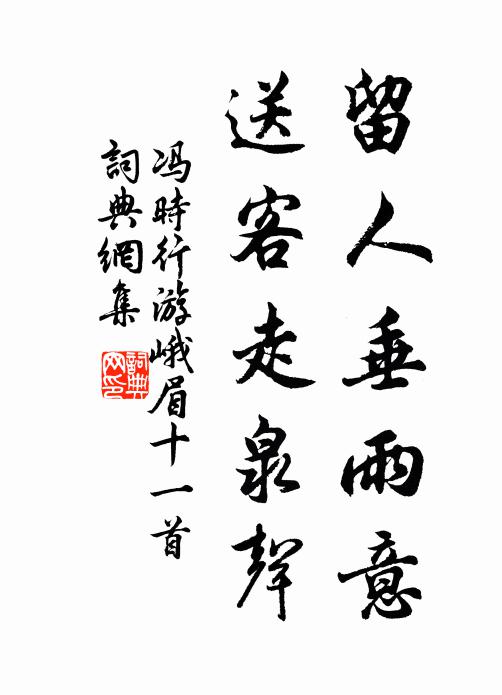 留人垂雨意
送客走泉聲
冯時行游峨眉十一首
詞典網集
詞典网印